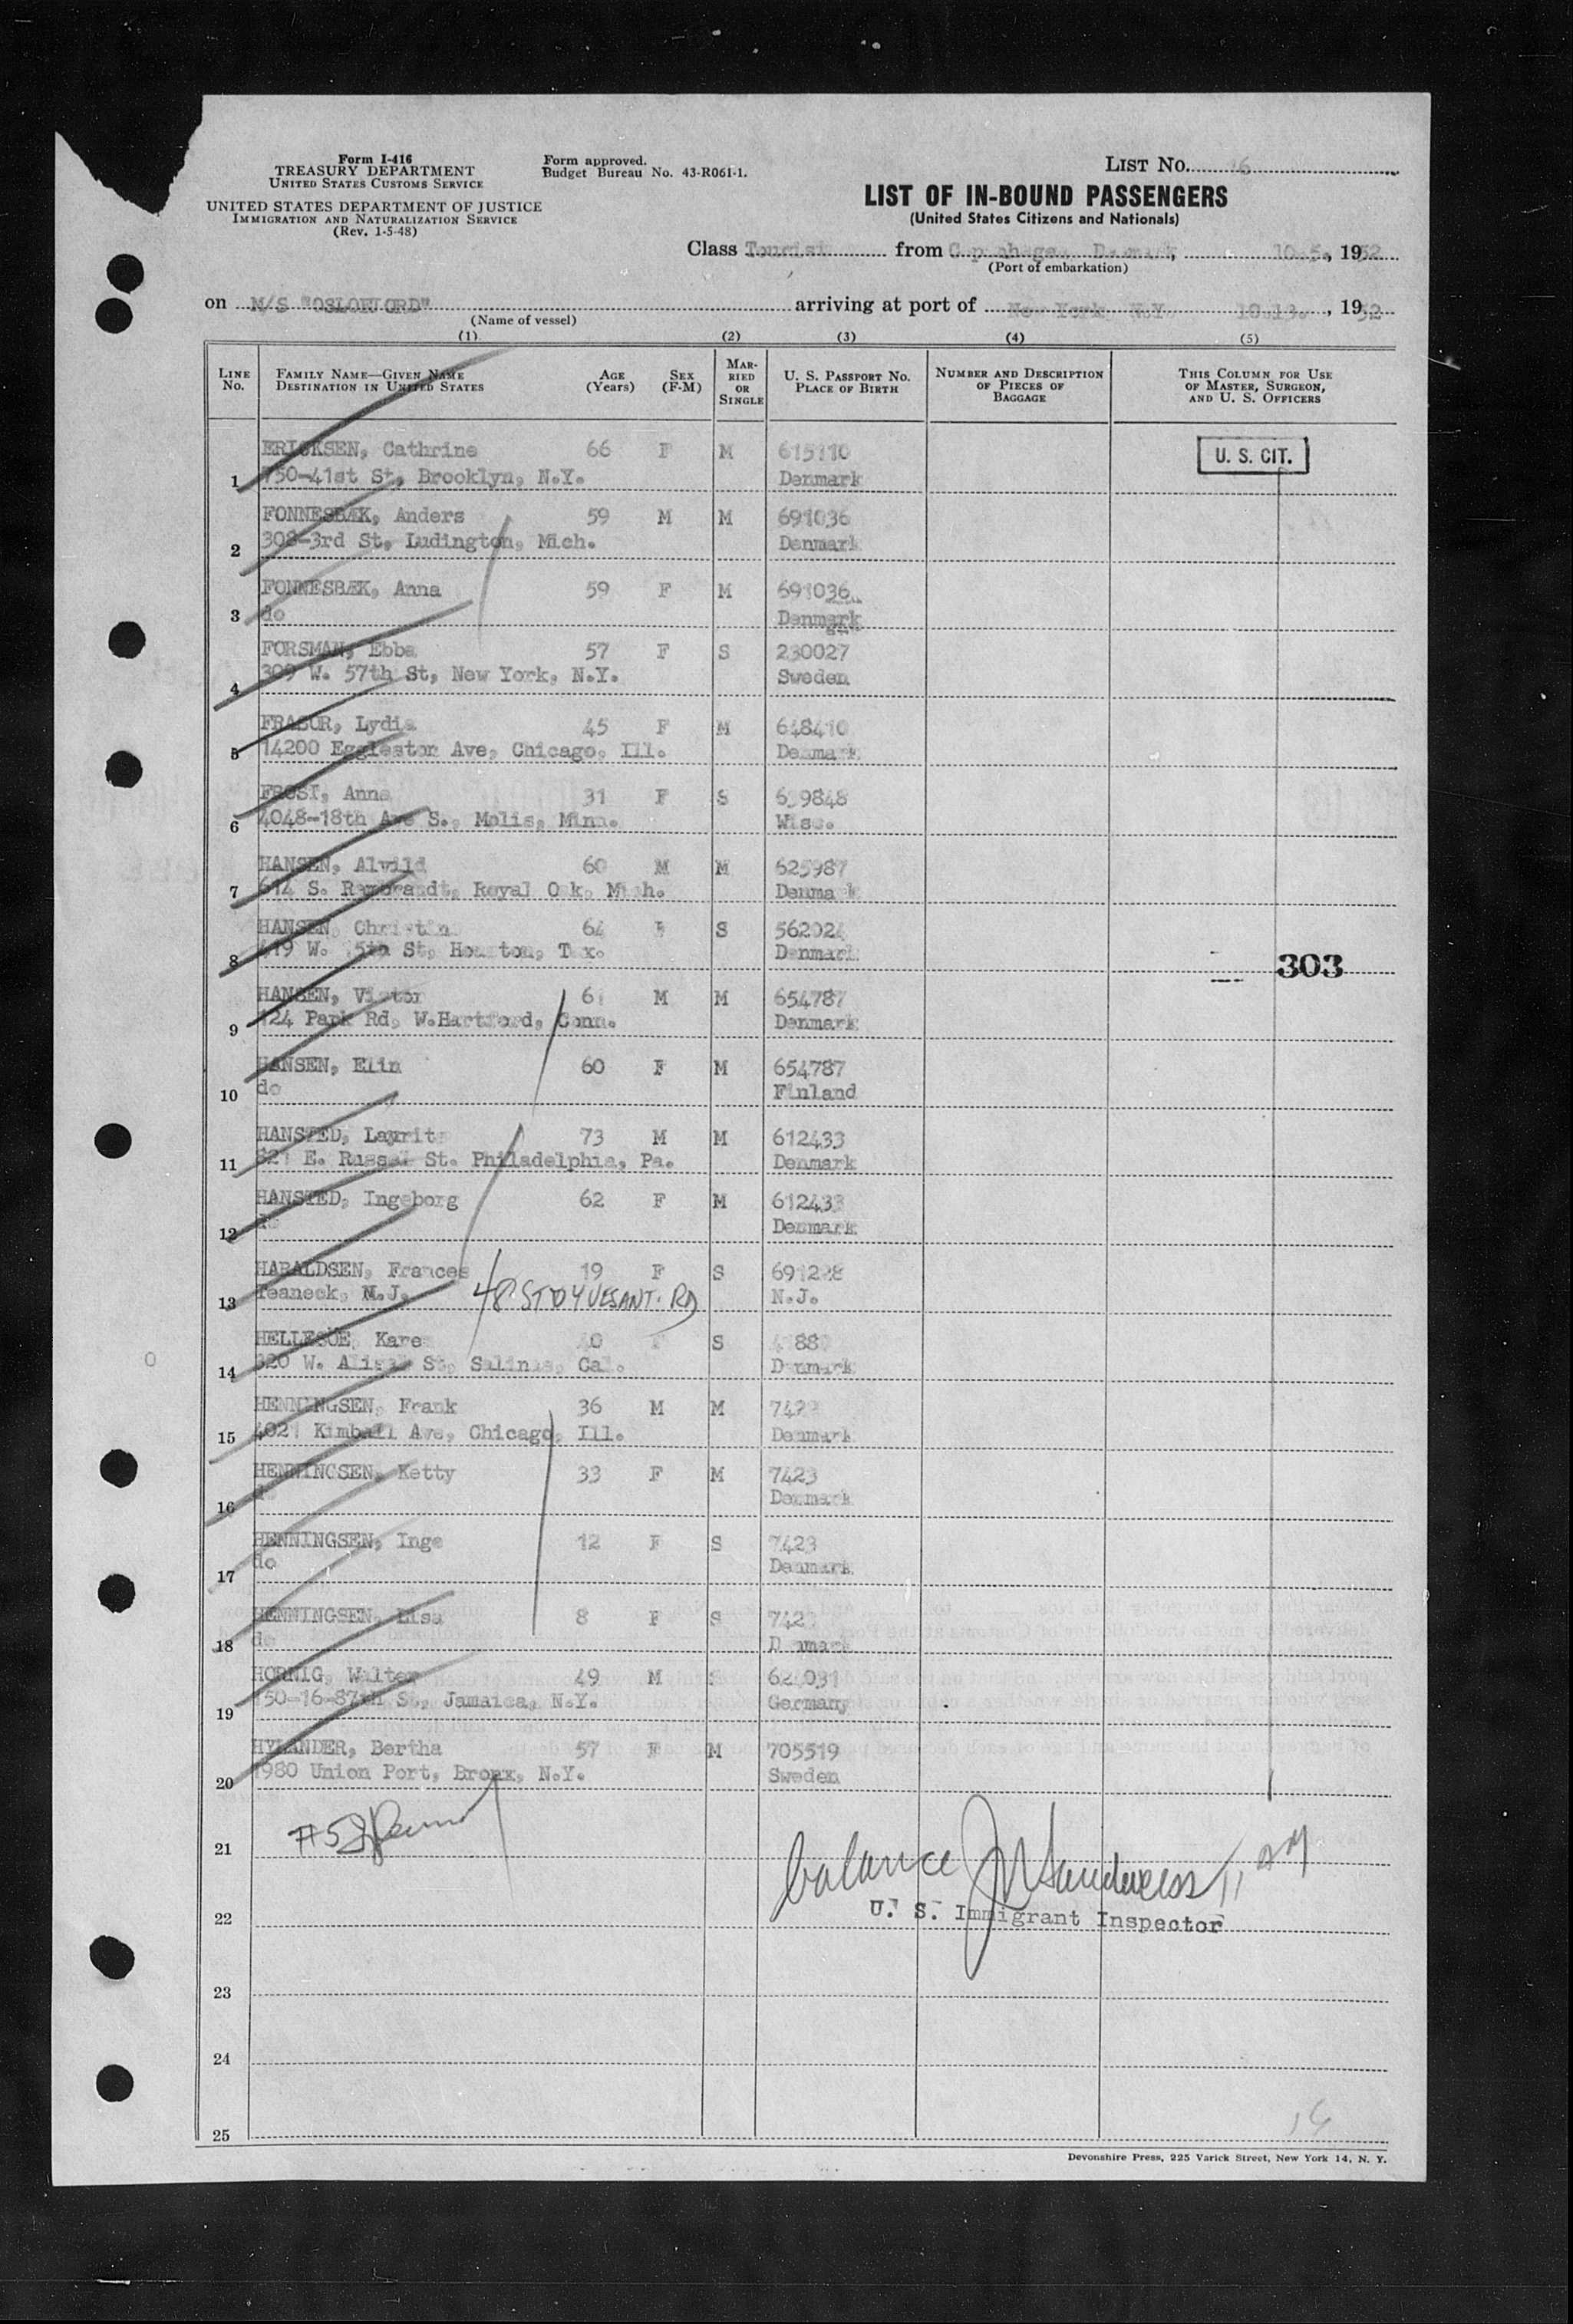 Form I-416
TREASURY DEPARTMENT
UNITED STATES CUSTOMS SERVICE
UNITED STATES DEPARTMENT OF JUSTICE
IMMIGRATION AND NATURALIZATION SERVICE
(Rev. 1-5-48)
Form approved.
Budget Bureau No. 43-R061-1.
LIST No. 16
LIST OF IN-BOUND PASSENGERS
(United States Citizens and Nationals)
Class Tourist from Copenhagen, Denmark, 10.5., 1952
(Port of embarkation)
on M/S "OSLOFJORD" arriving at port of New York, N.Y. 10.13., 1952
(Name of vessel)
(1) (2) (3) (4) (5)
LINE No. FAMILY NAME—GIVEN NAME DESTINATION IN UNITED STATES AGE (Years) SEX (F-M) MARRIED OR SINGLE U. S. PASSPORT NO. PLACE OF BIRTH NUMBER AND DESCRIPTION OF PIECES OF BAGGAGE THIS COLUMN FOR USE OF MASTER, SURGEON, AND U. S. OFFICERS
ERICKSEN, Cathrine 66 F M 615110 U. S. CIT.
1 750-41st St, Brooklyn, N.Y. Denmark
FONNESBÆK, Anders 59 M M 691036
2 308-3rd St, Ludington, Mich. Denmark
FONNESBÆK, Anna 59 F M 691036
3 do Denmark
FORSMAN, Ebba 57 F S 230027
4 309 W. 57th St, New York, N.Y. Sweden
FRASUR, Lydia 45 F M 648410
5 14200 Eggleston Ave, Chicago, Ill. Denmark
FROST, Anna 31 F S
6 4048-18th Ave S., Mplis, Minn. Wisc.
HANSEN, Alvild 60 M M 625987
7 614 S. Rembrandt, Royal Oak, Mich. Denmark
HANSEN, S 562024
8 419 W. St, Houston, Tex. Denmark 303
HANSEN, Victor 61 M M 654787
9 124 Park Rd, W.Hartford, Conn. Denmark
HANSEN, Elin 60 F M 654787
10 do Finland
HANSTED, Laurits 73 M M 612433
11 621 E. St. Philadelphia, Pa. Denmark
HANSTED, Ingeborg 62 F M 612433
12 do Denmark
HARALDSEN, Frances 19 F S 691228
13 Teaneck, N.J. 48 STOYVESANT. RD N.J.
HELLESOE, Karen 40 F S
14 320 W. Alisal St, Salinas, Cal. Denmark
HENNINGSEN, Frank 36 M M 7423
15 4021 Kimball Ave, Chicago, Ill. Denmark
HENNINGSEN, Ketty 33 F M 7423
16 do Denmark
HENNINGSEN, Inge 12 F S 7423
17 do Denmark
HENNINGSEN, Lisa 8 F S 7423
18 do Denmark
HORNIG, Walter 49 M S
19 150-16-87th St, Jamaica, N.Y. Germany
HYLANDER, Bertha 57 F M 705519
20 1980 Union Port, Bronx, N.Y. Sweden
21 #5 balance
22 U. S. Immigrant Inspector
23
24
25
16
Devonshire Press, 225 Varick Street, New York 14, N. Y.